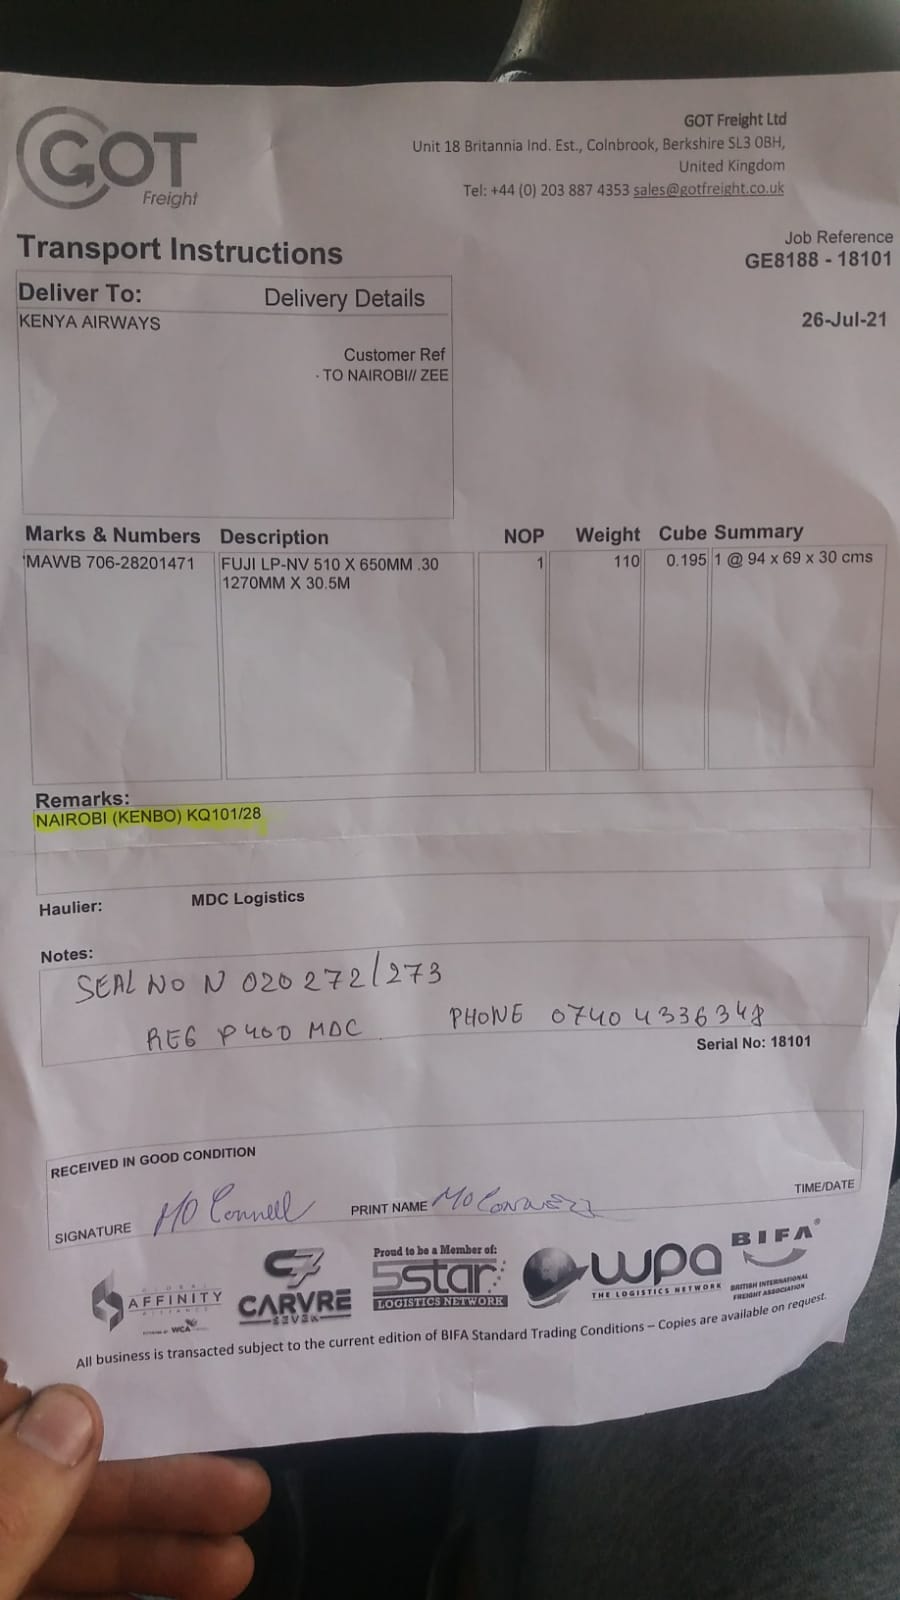 GOT
Freight
GOT Freight Ltd
Unit 18 Britannia Ind. Est., Colnbrook, Berkshire SL3 0BH,
United Kingdom
Tel: +44 (0) 203 887 4353 sales@gotfreight.co.uk
Transport Instructions
Job Reference
GE8188 - 18101
26-Jul-21
Deliver To: Delivery Details
KENYA AIRWAYS
Customer Ref
- TO NAIROBI// ZEE
Marks & Numbers Description NOP Weight Cube Summary
MAWB 706-28201471 FUJI LP-NV 510 X 650MM .30 1 110 0.195 1 @ 94 x 69 x 30 cms
1270MM X 30.5M
Remarks:
NAIROBI (KENBO) KQ101/28
Haulier: MDC Logistics
Notes:
SEAL NO N 020272/273
REG P400 MDC PHONE 07404336348
Serial No: 18101
RECEIVED IN GOOD CONDITION
SIGNATURE PRINT NAME TIME/DATE
GLOBAL AFFINITY ALLIANCE
WCA
C7
CARVRE
SEVEN
Proud to be a Member of:
5star
LOGISTICS NETWORK
wpa
THE LOGISTICS NETWORK
BIFA
BRITISH INTERNATIONAL
FREIGHT ASSOCIATION
All business is transacted subject to the current edition of BIFA Standard Trading Conditions – Copies are available on request.